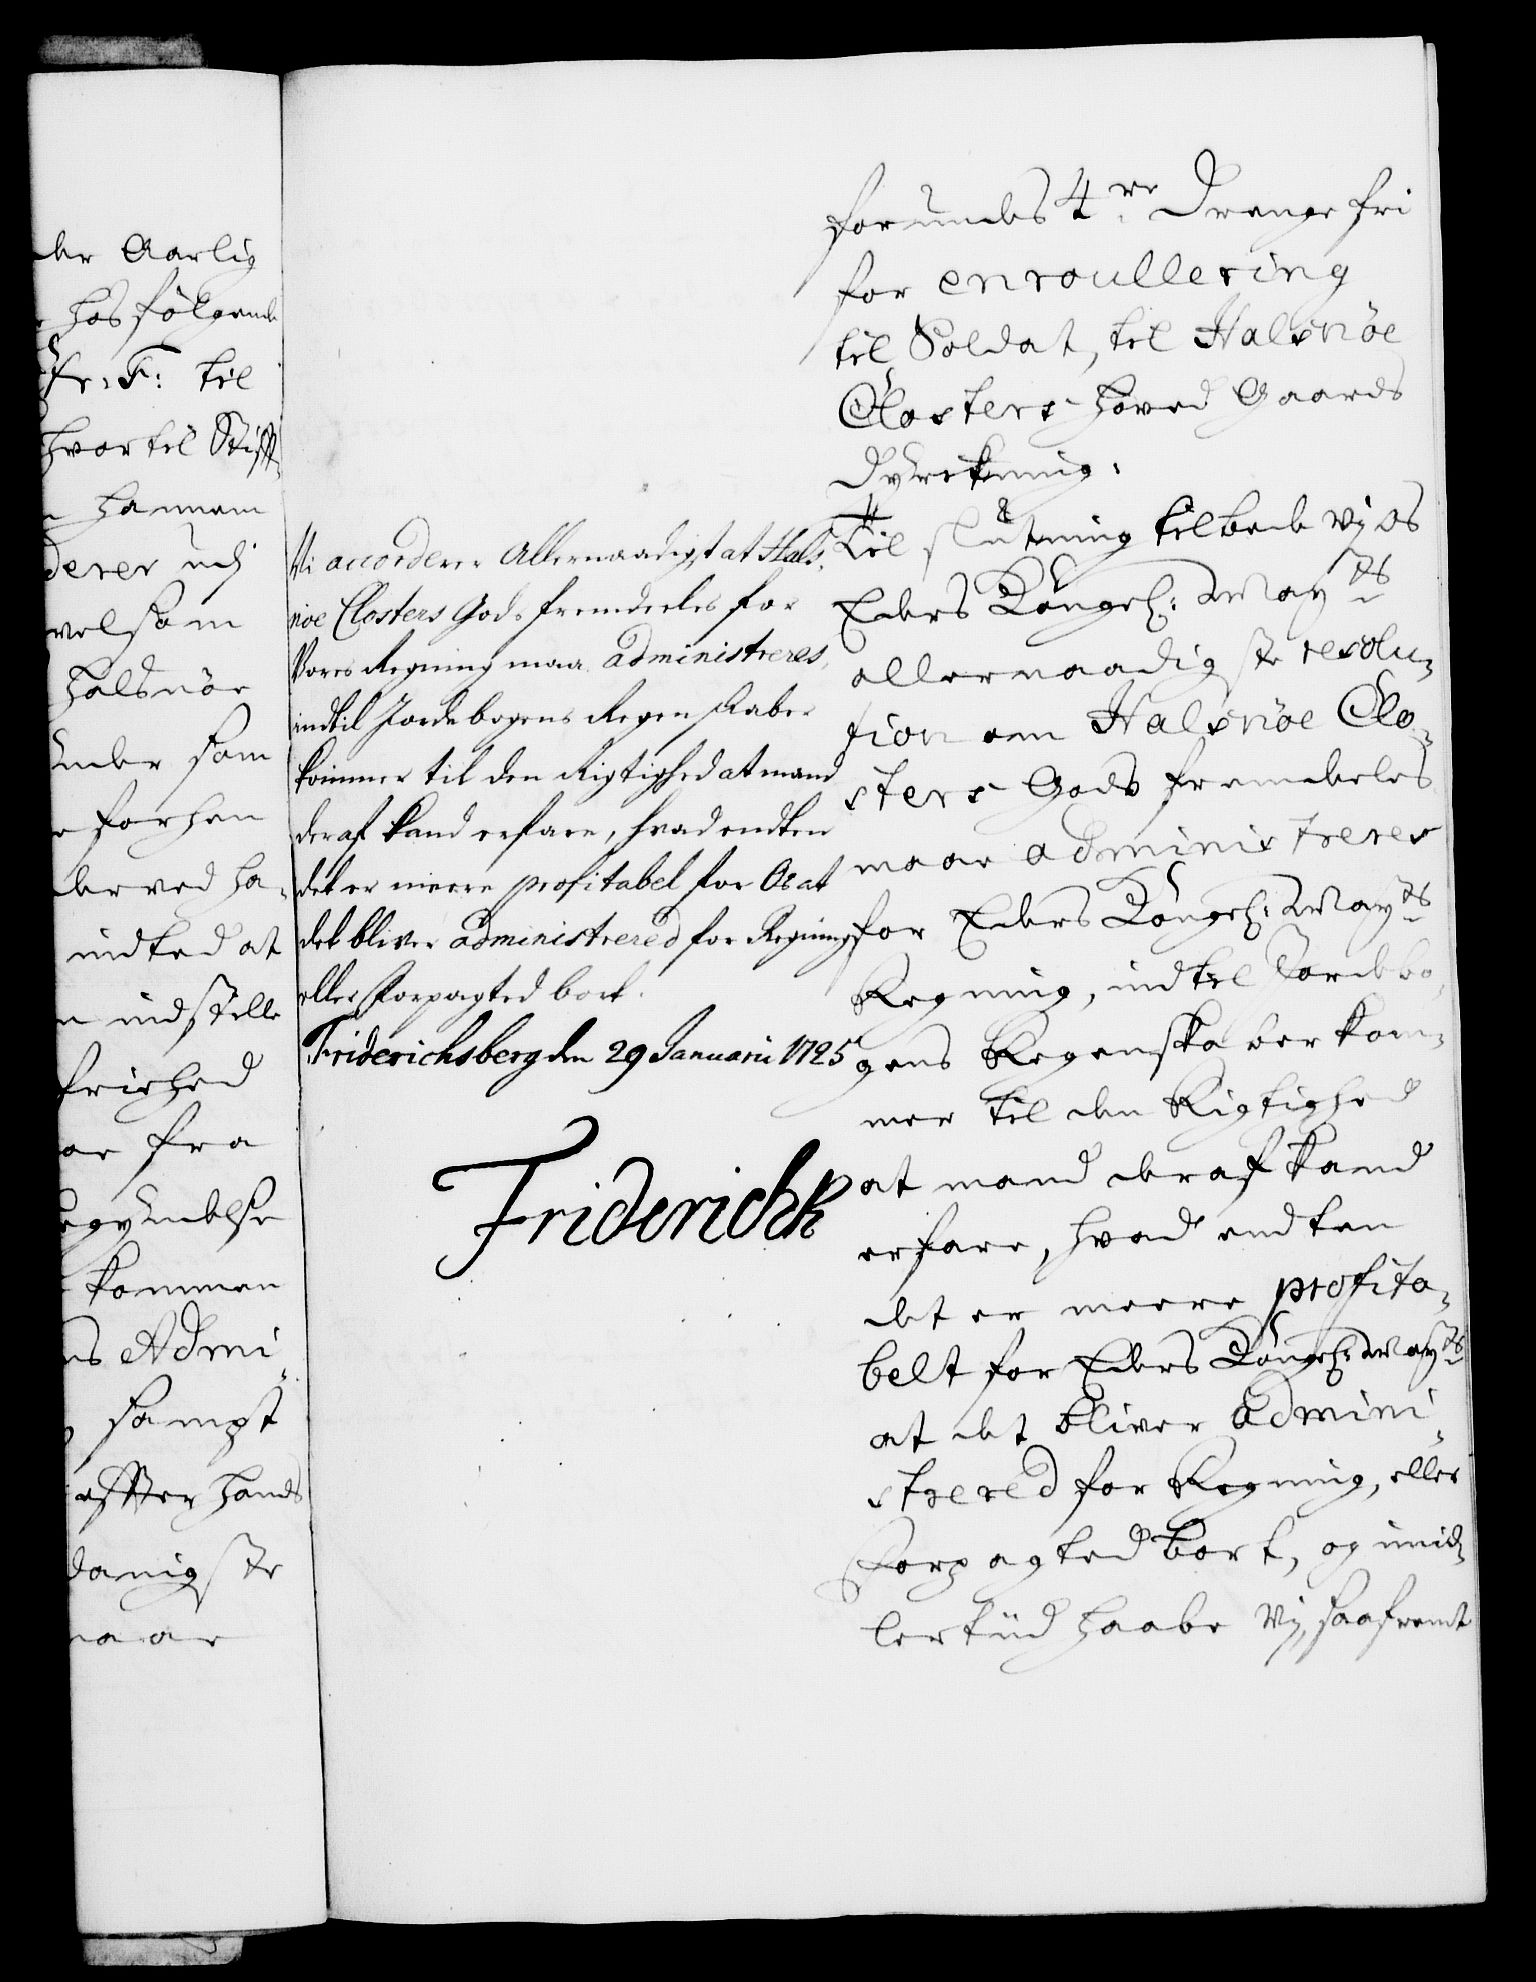 der Aarlig
hos følgende
hr: F: til
hvortil Stifft
hannem
derer udj
velsom
Halsnöe
under som
forhen
derved ha-
indted at
indstille
friehed
fra
begyndelse
kommen
Admi-
sampt
effter hands
danigste
maae
Vi accorderer Allernaadigst at Hals-
nøe Closters Gods fremdeeles for
Vores Regning maa administreres,
indtil Jordebogens Regenskaber
kommer til den Rigtighed at mand
deraf kand erfare, hvad endten
det er meere profitabel for Os at
det bliver administrered for Regning
eller forpagted bort.
Friderichsberg den 29 Januarii 1725
Friderich R
forundes 4re Drenge fri
for enroullering
til Soldat, til Halsnöe
Closters Hoved Gaards
Dyrckning:
Til slutning tilbede Vj os
Eders Kongel: Mayts
allernaadigste resolu-
tion om Halsnöe Clo-
sters Gods fremdeeles
maae administreres
for Eders Kongel: Mayts
Regning, indtil Jordebo-
gens Regenskaber kom-
mer til den Rigtighed
at mand deraf kand
erfare, hvad endten
det er meere profita-
belt for Eders Kongel: Mayts
at det bliver admini-
strered for Regning, eller
Forpagted bort, og imid-
lertiid haabe Vj, saafremt